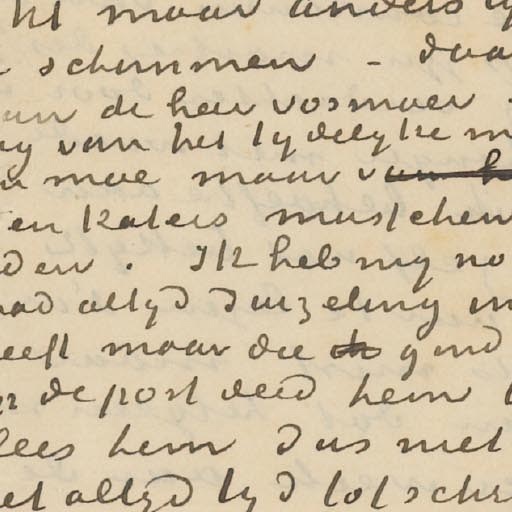 maar anders
schimmen - daar
aan de heer vosmaer.
van het tydelyke
moe maar v~~an h~~
en katers musschen
den. Ik heb my no
altyd duizeling in
eeft maar die ginds
de post deed hem
lees hem dus niet
et altyd tyd tot schr